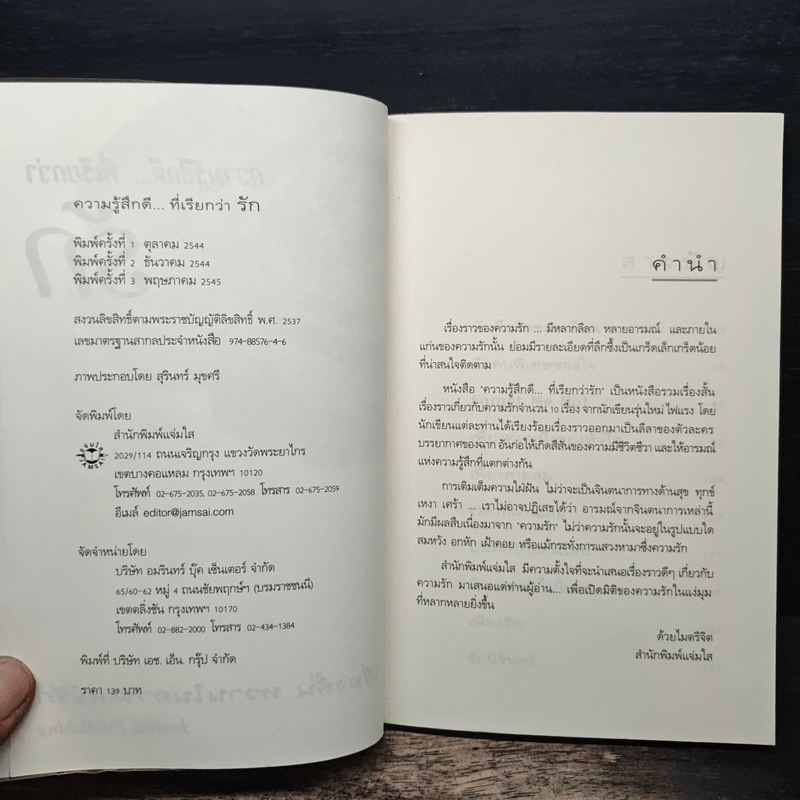 ความรู้สึกดี... ที่เรียกว่า รัก
พิมพ์ครั้งที่ 1 ตุลาคม 2544
พิมพ์ครั้งที่ 2 ธันวาคม 2544
พิมพ์ครั้งที่ 3 พฤษภาคม 2545
สงวนลิขสิทธิ์ตามพระราชบัญญัติลิขสิทธิ์ พ.ศ. 2537
เลขมาตรฐานสากลประจำหนังสือ 974-88576-4-6
ภาพประกอบโดย สุรินทร์ มุขศรี
จัดพิมพ์โดย
สำนักพิมพ์แจ่มใส
2029/114 ถนนเจริญกรุง แขวงวัดพระยาไกร
เขตบางคอแหลม กรุงเทพฯ 10120
โทรศัพท์ 02-675-2035, 02-675-2058 โทรสาร 02-675-2059
อีเมล์ editor@jamsai.com
จัดจำหน่ายโดย
บริษัท อมรินทร์ บุ๊ค เซ็นเตอร์ จำกัด
65/60-62 หมู่ 4 ถนนชัยพฤกษ์ฯ (บรมราชชนนี)
เขตตลิ่งชัน กรุงเทพฯ 10170
โทรศัพท์ 02-882-2000 โทรสาร 02-434-1384
พิมพ์ที่ บริษัท เอช. เอ็น. กรุ๊ป จำกัด
ราคา 139 บาท
คำนำ
เรื่องราวของความรัก ... มีหลากลีลา หลายอารมณ์ และภายใน
แก่นของความรักนั้น ย่อมมีรายละเอียดที่ลึกซึ้งเป็นเกร็ดเล็กเกร็ดน้อย
ที่น่าสนใจติดตาม
หนังสือ "ความรู้สึกดี... ที่เรียกว่ารัก" เป็นหนังสือรวมเรื่องสั้น
เรื่องราวเกี่ยวกับความรักจำนวน 10 เรื่อง จากนักเขียนรุ่นใหม่ ไฟแรง โดย
นักเขียนแต่ละท่านได้เรียงร้อยเรื่องราวออกมาเป็นลีลาของตัวละคร
บรรยากาศของฉาก อันก่อให้เกิดสีสันของความมีชีวิตชีวา และให้อารมณ์
แห่งความรู้สึกที่แตกต่างกัน
การเติมเต็มความใฝ่ฝัน ไม่ว่าจะเป็นจินตนาการทางด้านสุข ทุกข์
เหงา เศร้า ... เราไม่อาจปฏิเสธได้ว่า อารมณ์จากจินตนาการเหล่านี้
มักมีผลสืบเนื่องมาจาก "ความรัก" ไม่ว่าความรักนั้นจะอยู่ในรูปแบบใด
สมหวัง อกหัก เฝ้าคอย หรือแม้กระทั่งการแสวงหามาซึ่งความรัก
สำนักพิมพ์แจ่มใส มีความตั้งใจที่จะนำเสนอเรื่องราวดีๆ เกี่ยวกับ
ความรัก มาเสนอแด่ท่านผู้อ่าน... เพื่อเปิดมิติของความรักในแง่มุม
ที่หลากหลายยิ่งขึ้น
ด้วยไมตรีจิต
สำนักพิมพ์แจ่มใส